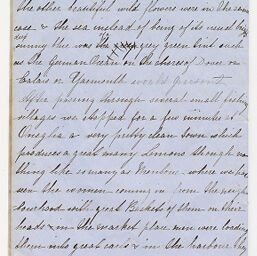 the other beautiful wild flowers were in the same
case & the sea instead of being of its usual
ing blue was the grey green tint such
as the German Ocean on the shores of Dover or
Calais or Yarmouth would present.
After passing through several small fishing
villages we stopped for a few minutes at
Oneglia a very pretty clean town which
produces a great many Lemons though no
thing like so many as Mentone where we have
seen the women coming in from the neigh
bourhood with great Baskets of them on their
heads & in the market place men were loading
them into great carts & in the harbour they